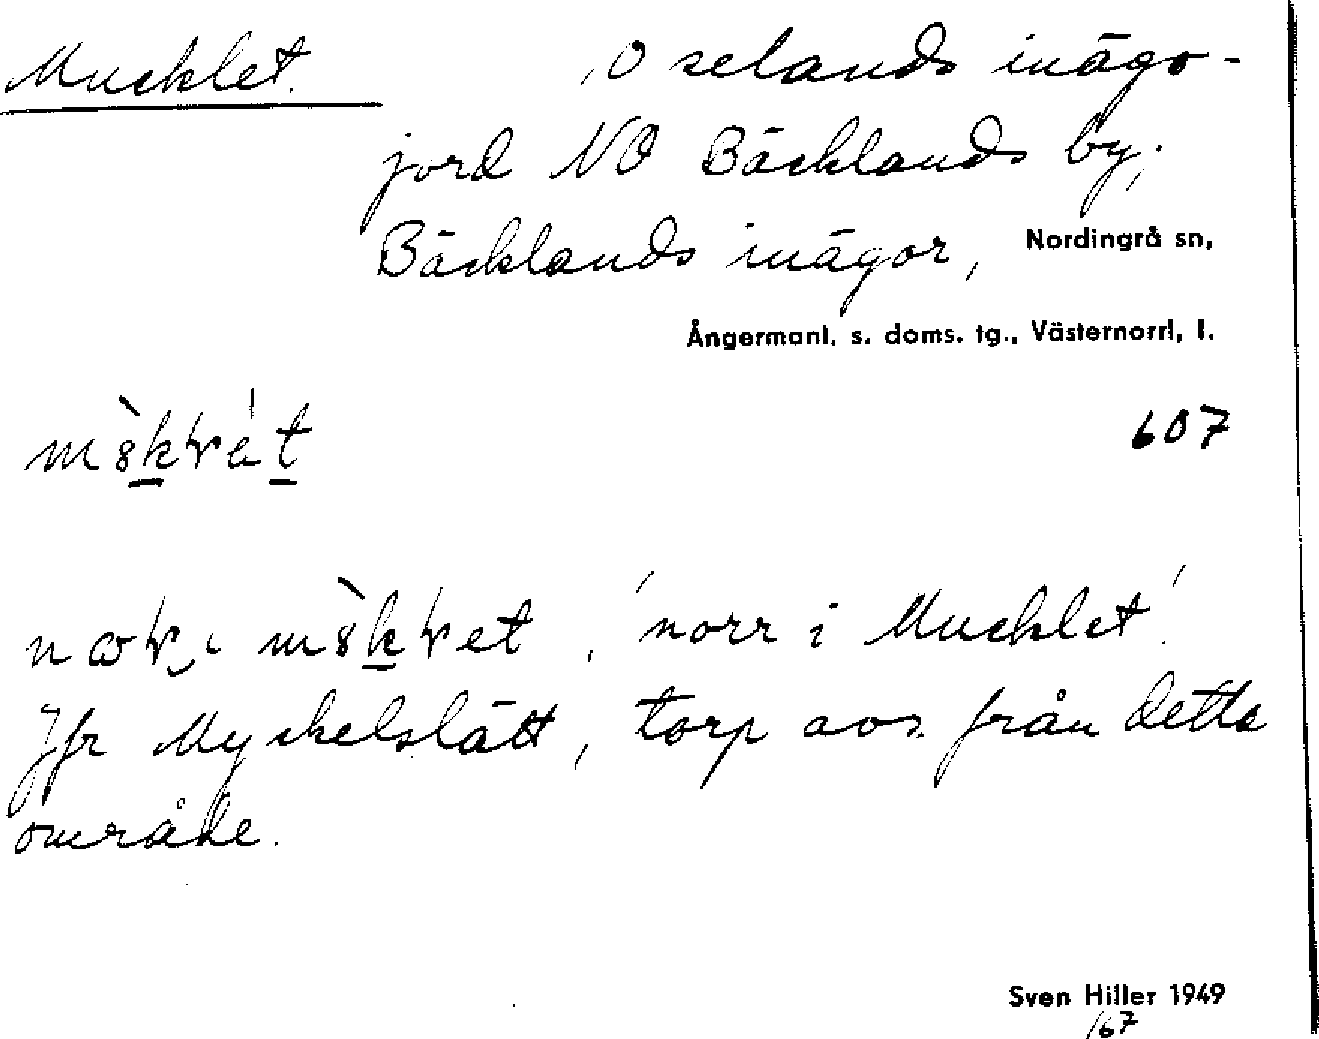 Mucklet. , O selands inägo-
jord NO Bäcklands by;
Bäcklands inägor, Nordingrå sn,
Ångermanl. s. doms. tg., Västernorrl. l.
607
, 'norr i Mucklet'.
Jfr Myckelslätt, torp avs. från detta
område.
Sven Hiller 1949
167